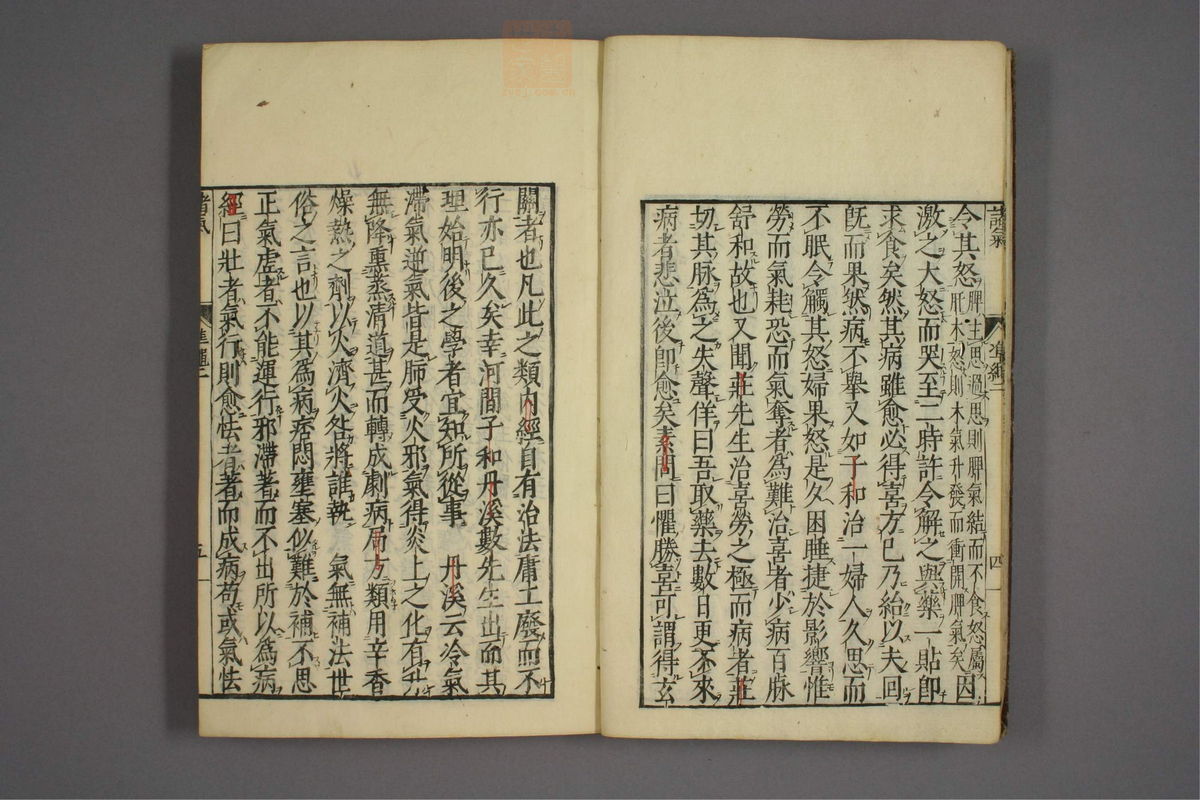 諸氣 準繩二 四
令其怒脾主思過思則脾氣結而不食怒屬肝木怒則木氣升發而衝開脾氣矣因
激之大怒而哭至二時許令解之與藥一貼卽
求食矣然其病雖愈必得喜方已乃紿以夫回
旣而果然病不舉又如子和治一婦人久思而
不眠令觸其怒婦果怒是久困睡捷於影響惟
勞而氣耗恐而氣奪者為難治喜者少病百脉
舒和故也又聞莊先生治喜勞之極而病者莊
切其脉為之失聲佯曰吾取藥去數日更不來
病者悲泣後卽愈矣素問曰懼勝喜可謂得玄
關者也凡此之類内經自有治法庸工廢而不
行亦已久矣幸河間子和丹溪數先生出而其
理始明後之學者宜知所從事 丹溪云冷氣
滯氣逆氣皆是肺受火邪氣得炎上之化有升
無降熏蒸清道甚而轉成劇病局方類用辛香
燥熱之劑以火濟火咎將誰執 氣無補法世
俗之言也以其為病痞悶壅塞似難於補不思
正氣虛者不能運行邪滯著而不出所以為病
經曰壯者氣行則愈怯者著而成病苟或氣怯
諸氣 準繩二 五